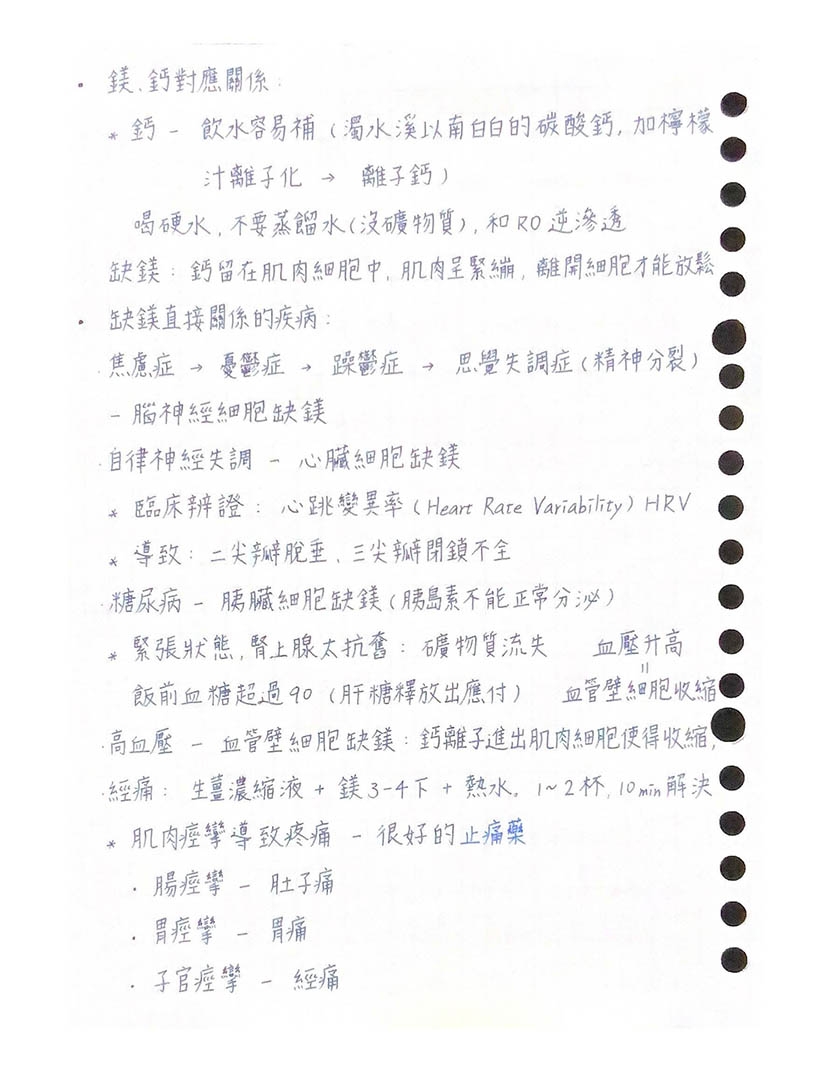 • 鎂、鈣對應關係:
* 鈣 - 飲水容易補(濁水溪以南白白的碳酸鈣,加檸檬
汁離子化 → 離子鈣)
喝硬水,不要蒸餾水(沒礦物質),和RO逆滲透
缺鎂:鈣留在肌肉細胞中,肌肉呈緊繃,離開細胞才能放鬆
• 缺鎂直接關係的疾病:
·焦慮症 → 憂鬱症 → 躁鬱症 → 思覺失調症(精神分裂)
- 腦神經細胞缺鎂
·自律神經失調 - 心臟細胞缺鎂
* 臨床辨證:心跳變異率(Heart Rate Variability)HRV
* 導致:二尖瓣脫垂、三尖瓣閉鎖不全
·糖尿病 - 胰臟細胞缺鎂(胰島素不能正常分泌)
* 緊張狀態,腎上腺太抗奮:礦物質流失 血壓升高
=
飯前血糖超過90(肝糖釋放出應付) 血管壁細胞收縮
·高血壓 - 血管壁細胞缺鎂:鈣離子進出肌肉細胞使得收縮,
·經痛:生薑濃縮液 + 鎂3-4下 + 熱水。1~2杯,10min解決
* 肌肉痙攣導致疼痛 - 很好的止痛藥
· 腸痙攣 - 肚子痛
· 胃痙攣 - 胃痛
· 子宮痙攣 - 經痛